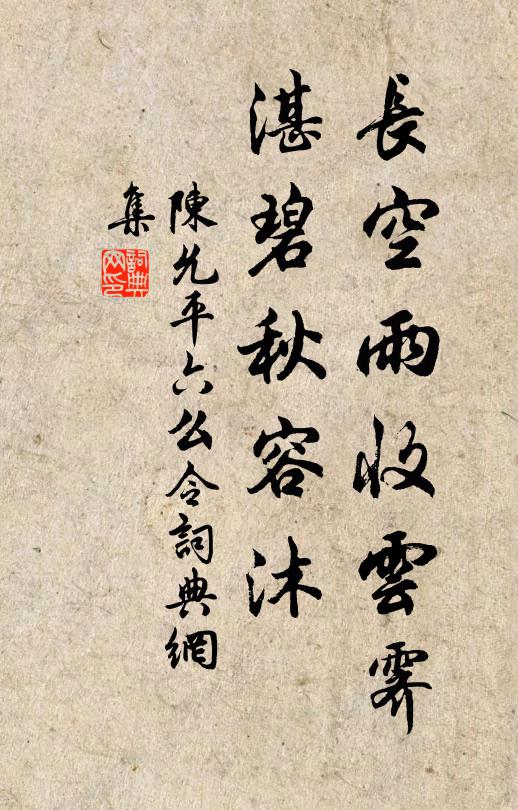 長空雨收雲霽
湛碧秋容沐
陳允平六么令詞典網
集
詞典
网印